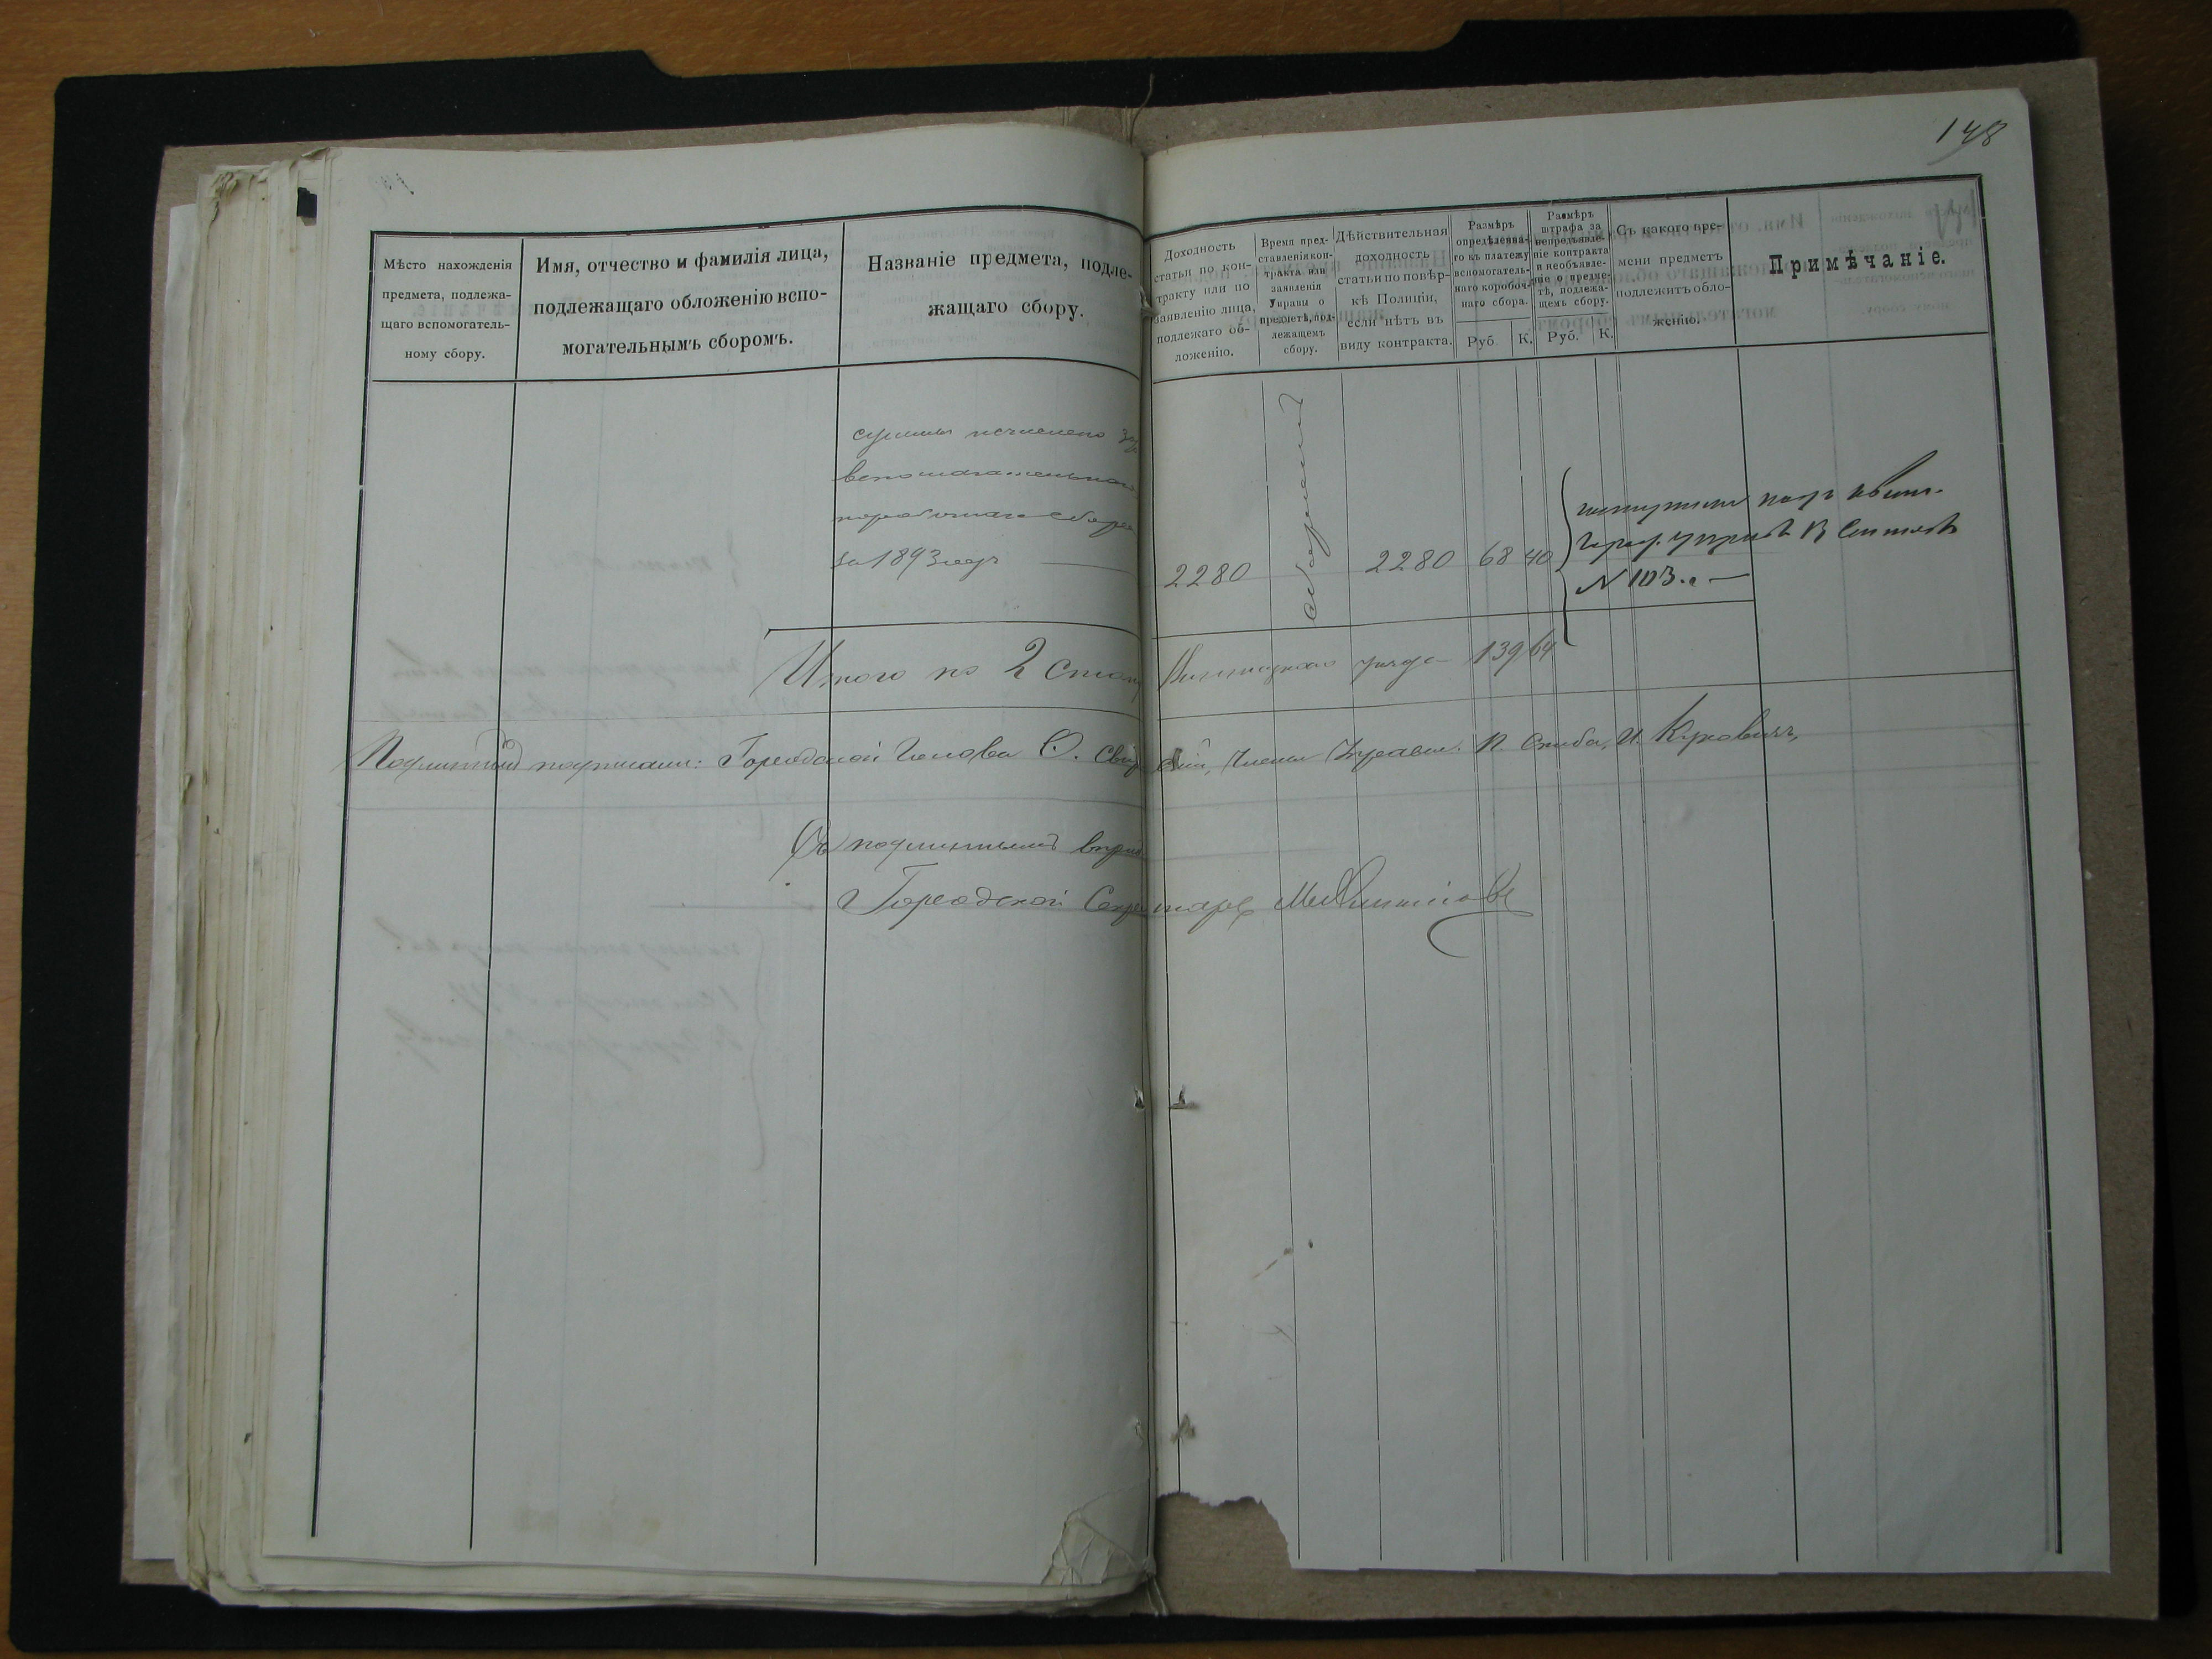 148
Мѣсто нахожденія
предмета, подлежа-
щаго вспомогатель-
ному сбору.
Имя, отчество и фамилія лица,
подлежащаго обложенію вспо-
могательнымъ сборомъ.
Названіе предмета, подле-
жащаго сбору.
Доходность
статьи по кон-
тракту или по
заявленію лица,
подлежаго об-
ложенію.
Время пред-
ставленія кон-
тракта или
заявленія
Управы о
предметѣ, под-
лежащемъ
сбору.
Дѣйствительная
доходность
статьи по повѣр-
кѣ Полиціи,
если нѣтъ въ
виду контракта.
Размѣръ
опредѣленна-
го къ платежу
вспомогатель-
наго коробоч-
наго сбора.
Руб. К.
Размѣръ
штрафа за
непредъявле-
ніе контракта
и необъявле-
ніе о предме-
тѣ, подлежа-
щемъ сбору.
Руб. К.
Съ какого вре-
мени предметъ
подлежитъ обло-
женію.
Примѣчаніе.
суммы исчислено
вспомогательнаго
коробочнаго сбора
за 1893 годъ
2280 2280 68 40
N 103
Итого по 2 стану Винницкаго уѣзда 139 64
Подлинный подписали: Городской Голова О. Члены Управы: П. Скиба, И. Куковичъ,
Съ подлиннымъ вѣрно
Городской Секретарь